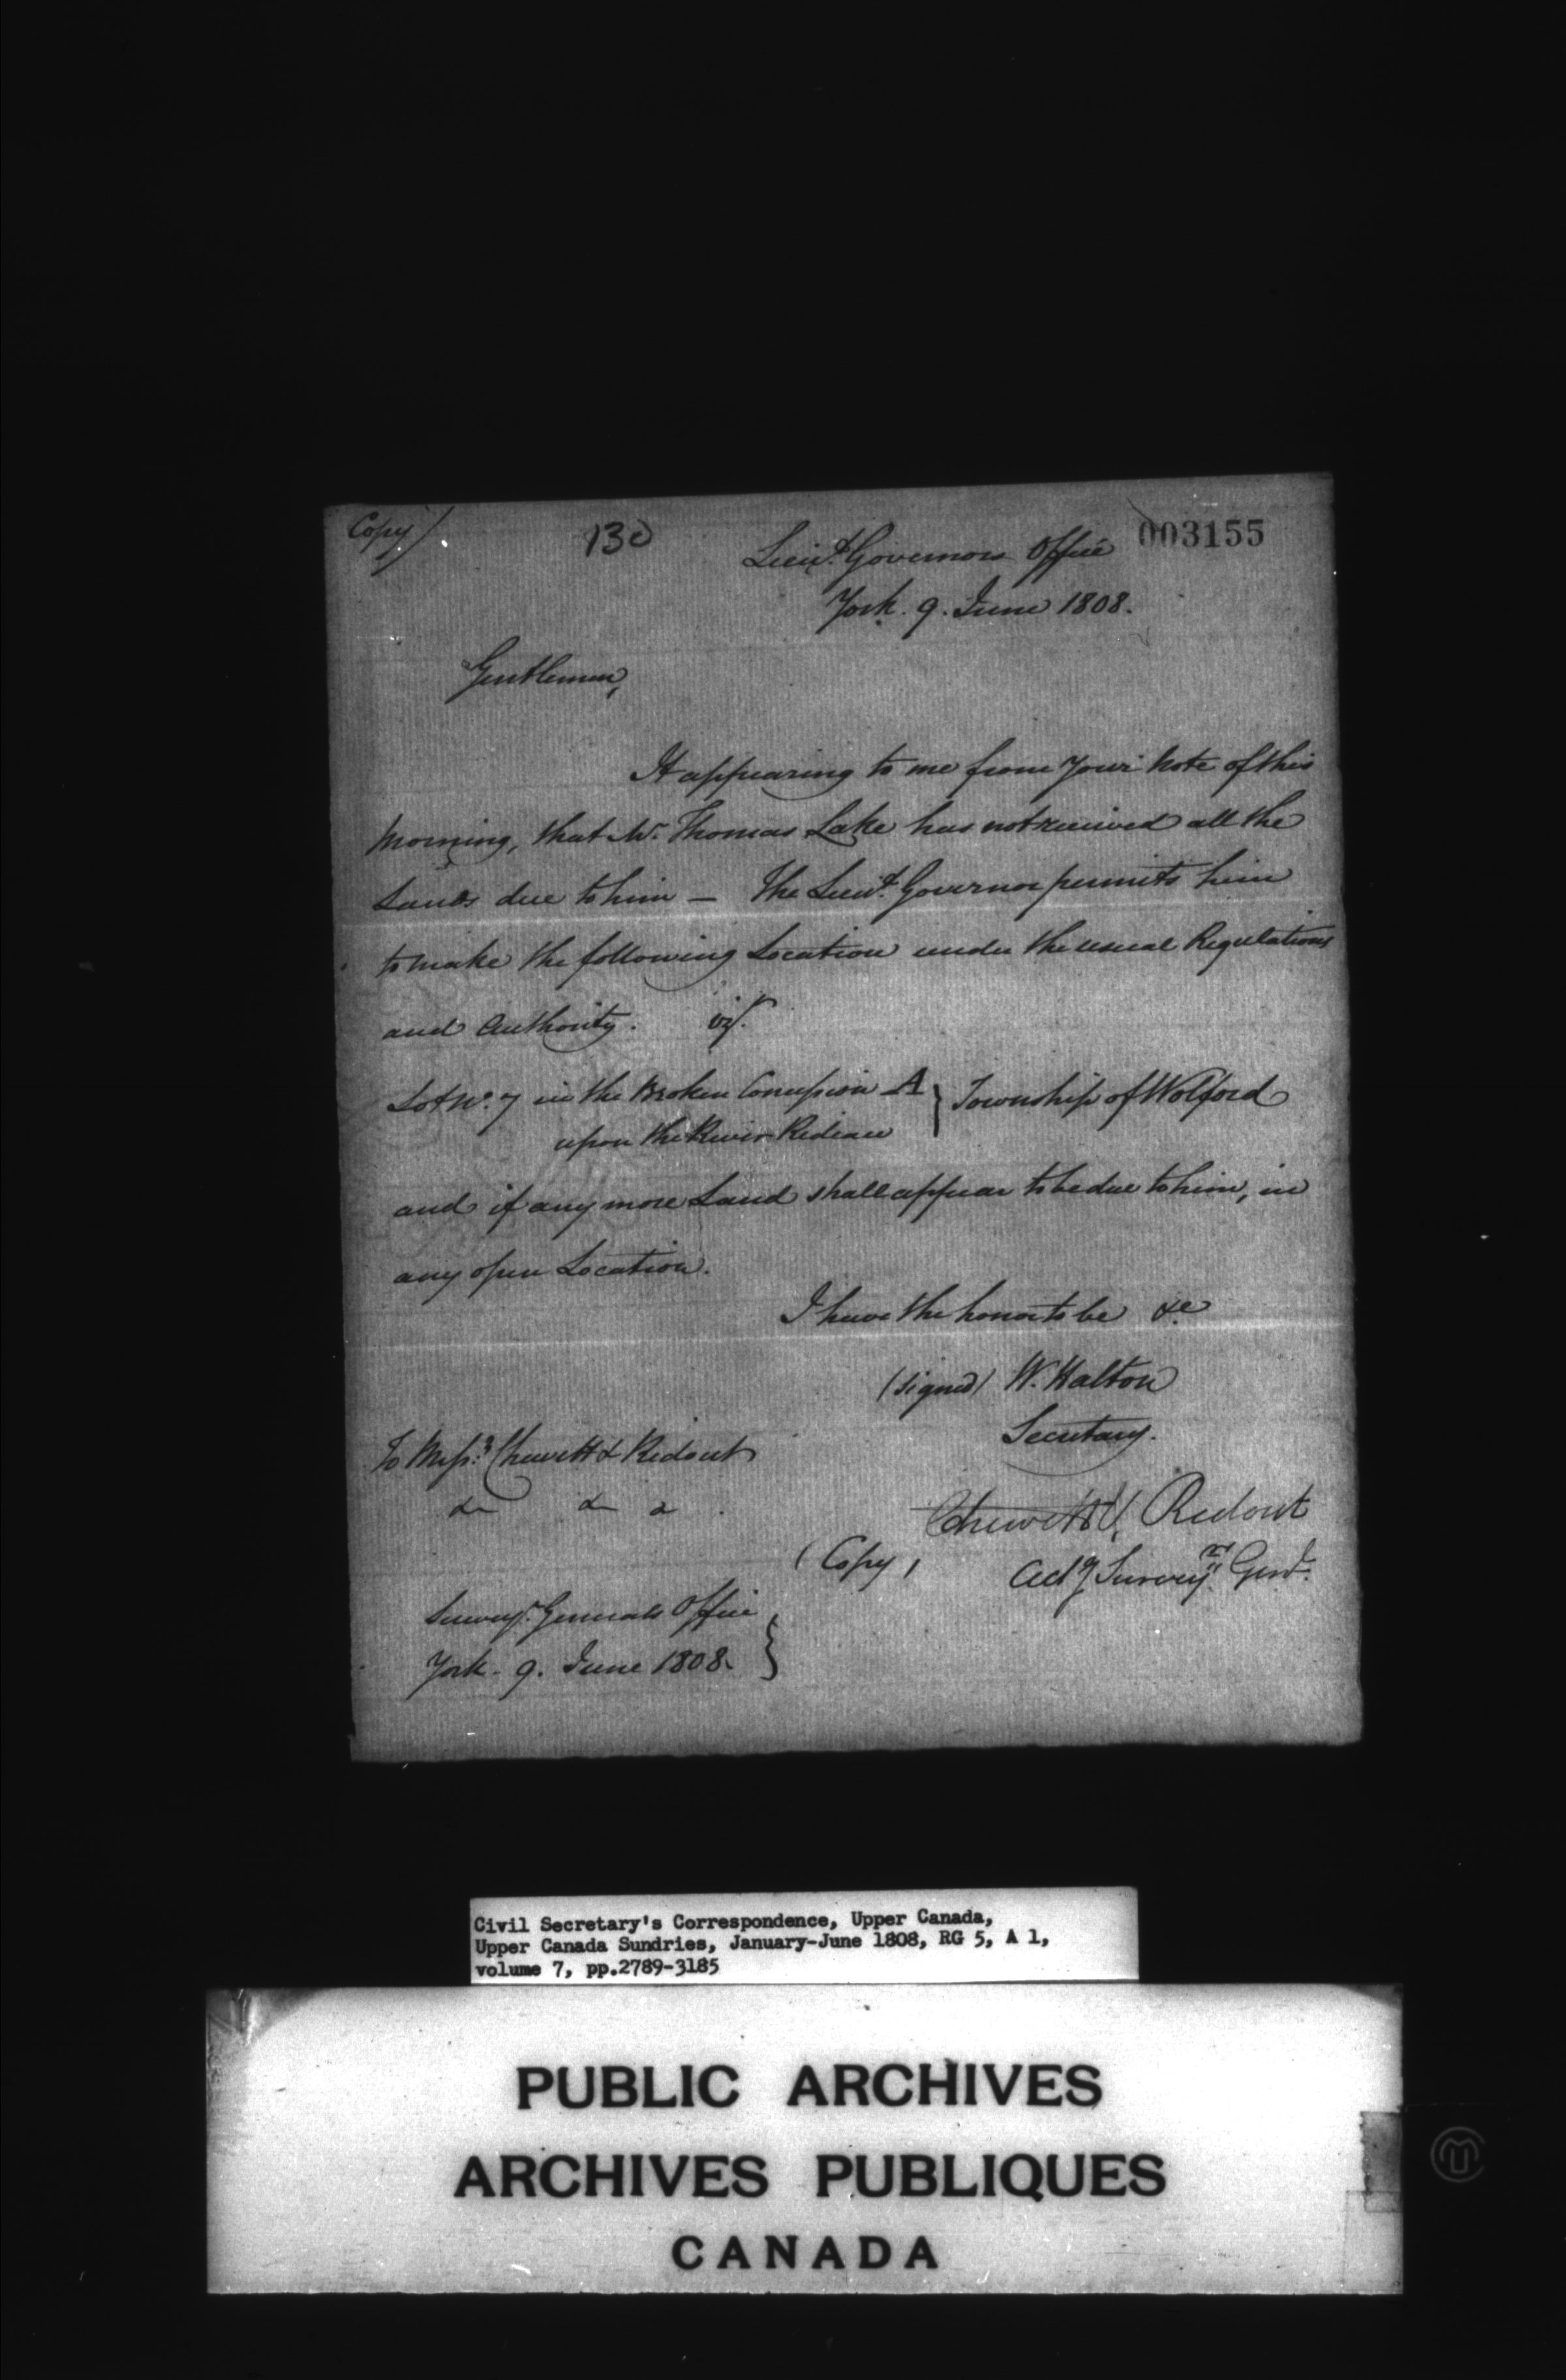 Copy/
130
003155
Lieut. Governors Office
York. 9. June 1808.
Gentlemen,
It appearing to me from your Note of this
Morning, that Mr. Thomas Lake has not received all the
Lands due to him — The Lieut. Governor permits him
to make the following Location under the usual Regulations
and Authority. viz.
Lot No. 7 in the Broken Concession A } Township of Wolford
upon the River Rideau
and if any more Land shall appear to be due to him, in
any open Location.
I have the honor to be &c
(signed) W. Halton
Secretary.
To Messrs. Chewett & Ridout
&c &c &c
Chewett & Ridout
(Copy)
Actg Surveyrs. Genl.
Surveyr. Generals Office }
York - 9. June 1808.
Civil Secretary's Correspondence, Upper Canada,
Upper Canada Sundries, January-June 1808, RG 5, A 1,
volume 7, pp.2789-3185
PUBLIC ARCHIVES
ARCHIVES PUBLIQUES
CANADA